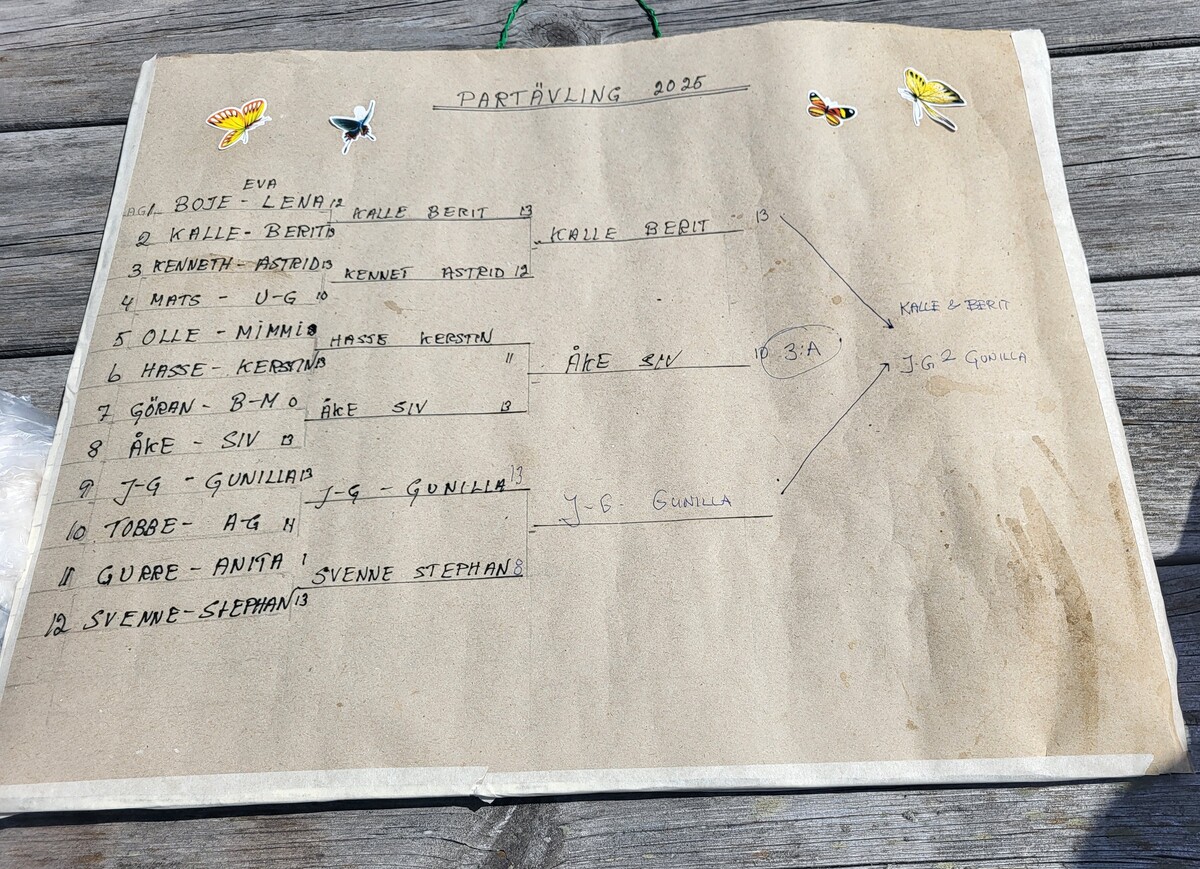 PARTÄVLING 2025
EVA
1 BOJE - LENA 12
2 KALLE - BERIT 13
3 KENNETH - ASTRID 13
4 MATS - U-G 10
5 OLLE - MIMMI
6 HASSE - KERSTIN 13
7 GÖRAN - B-M 0
8 ÅKE - SIV 13
9 J-G - GUNILLA 13
10 TOBBE - A-G 11
11 GURRE - ANITA 1
12 SVENNE - STEPHAN 13
KALLE BERIT 13
KENNET ASTRID 12
HASSE KERSTIN
11
ÅKE SIV 13
J-G - GUNILLA 13
SVENNE STEPHAN 8
KALLE BERIT 13
ÅKE SIV 10 3:A
J-G - GUNILLA
KALLE & BERIT
J-G 2 GUNILLA